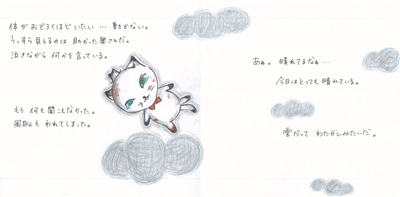 体がおどろくほどいたい … 動かない。
うっすら見えるのは 助かった
泣きながら 何かを言っている。
もう 何も聞こえなかった。
われてしまった。
あぁ。晴れてるなぁ…
今日はとっても晴れている。
雲だって わたがしみたいだ。